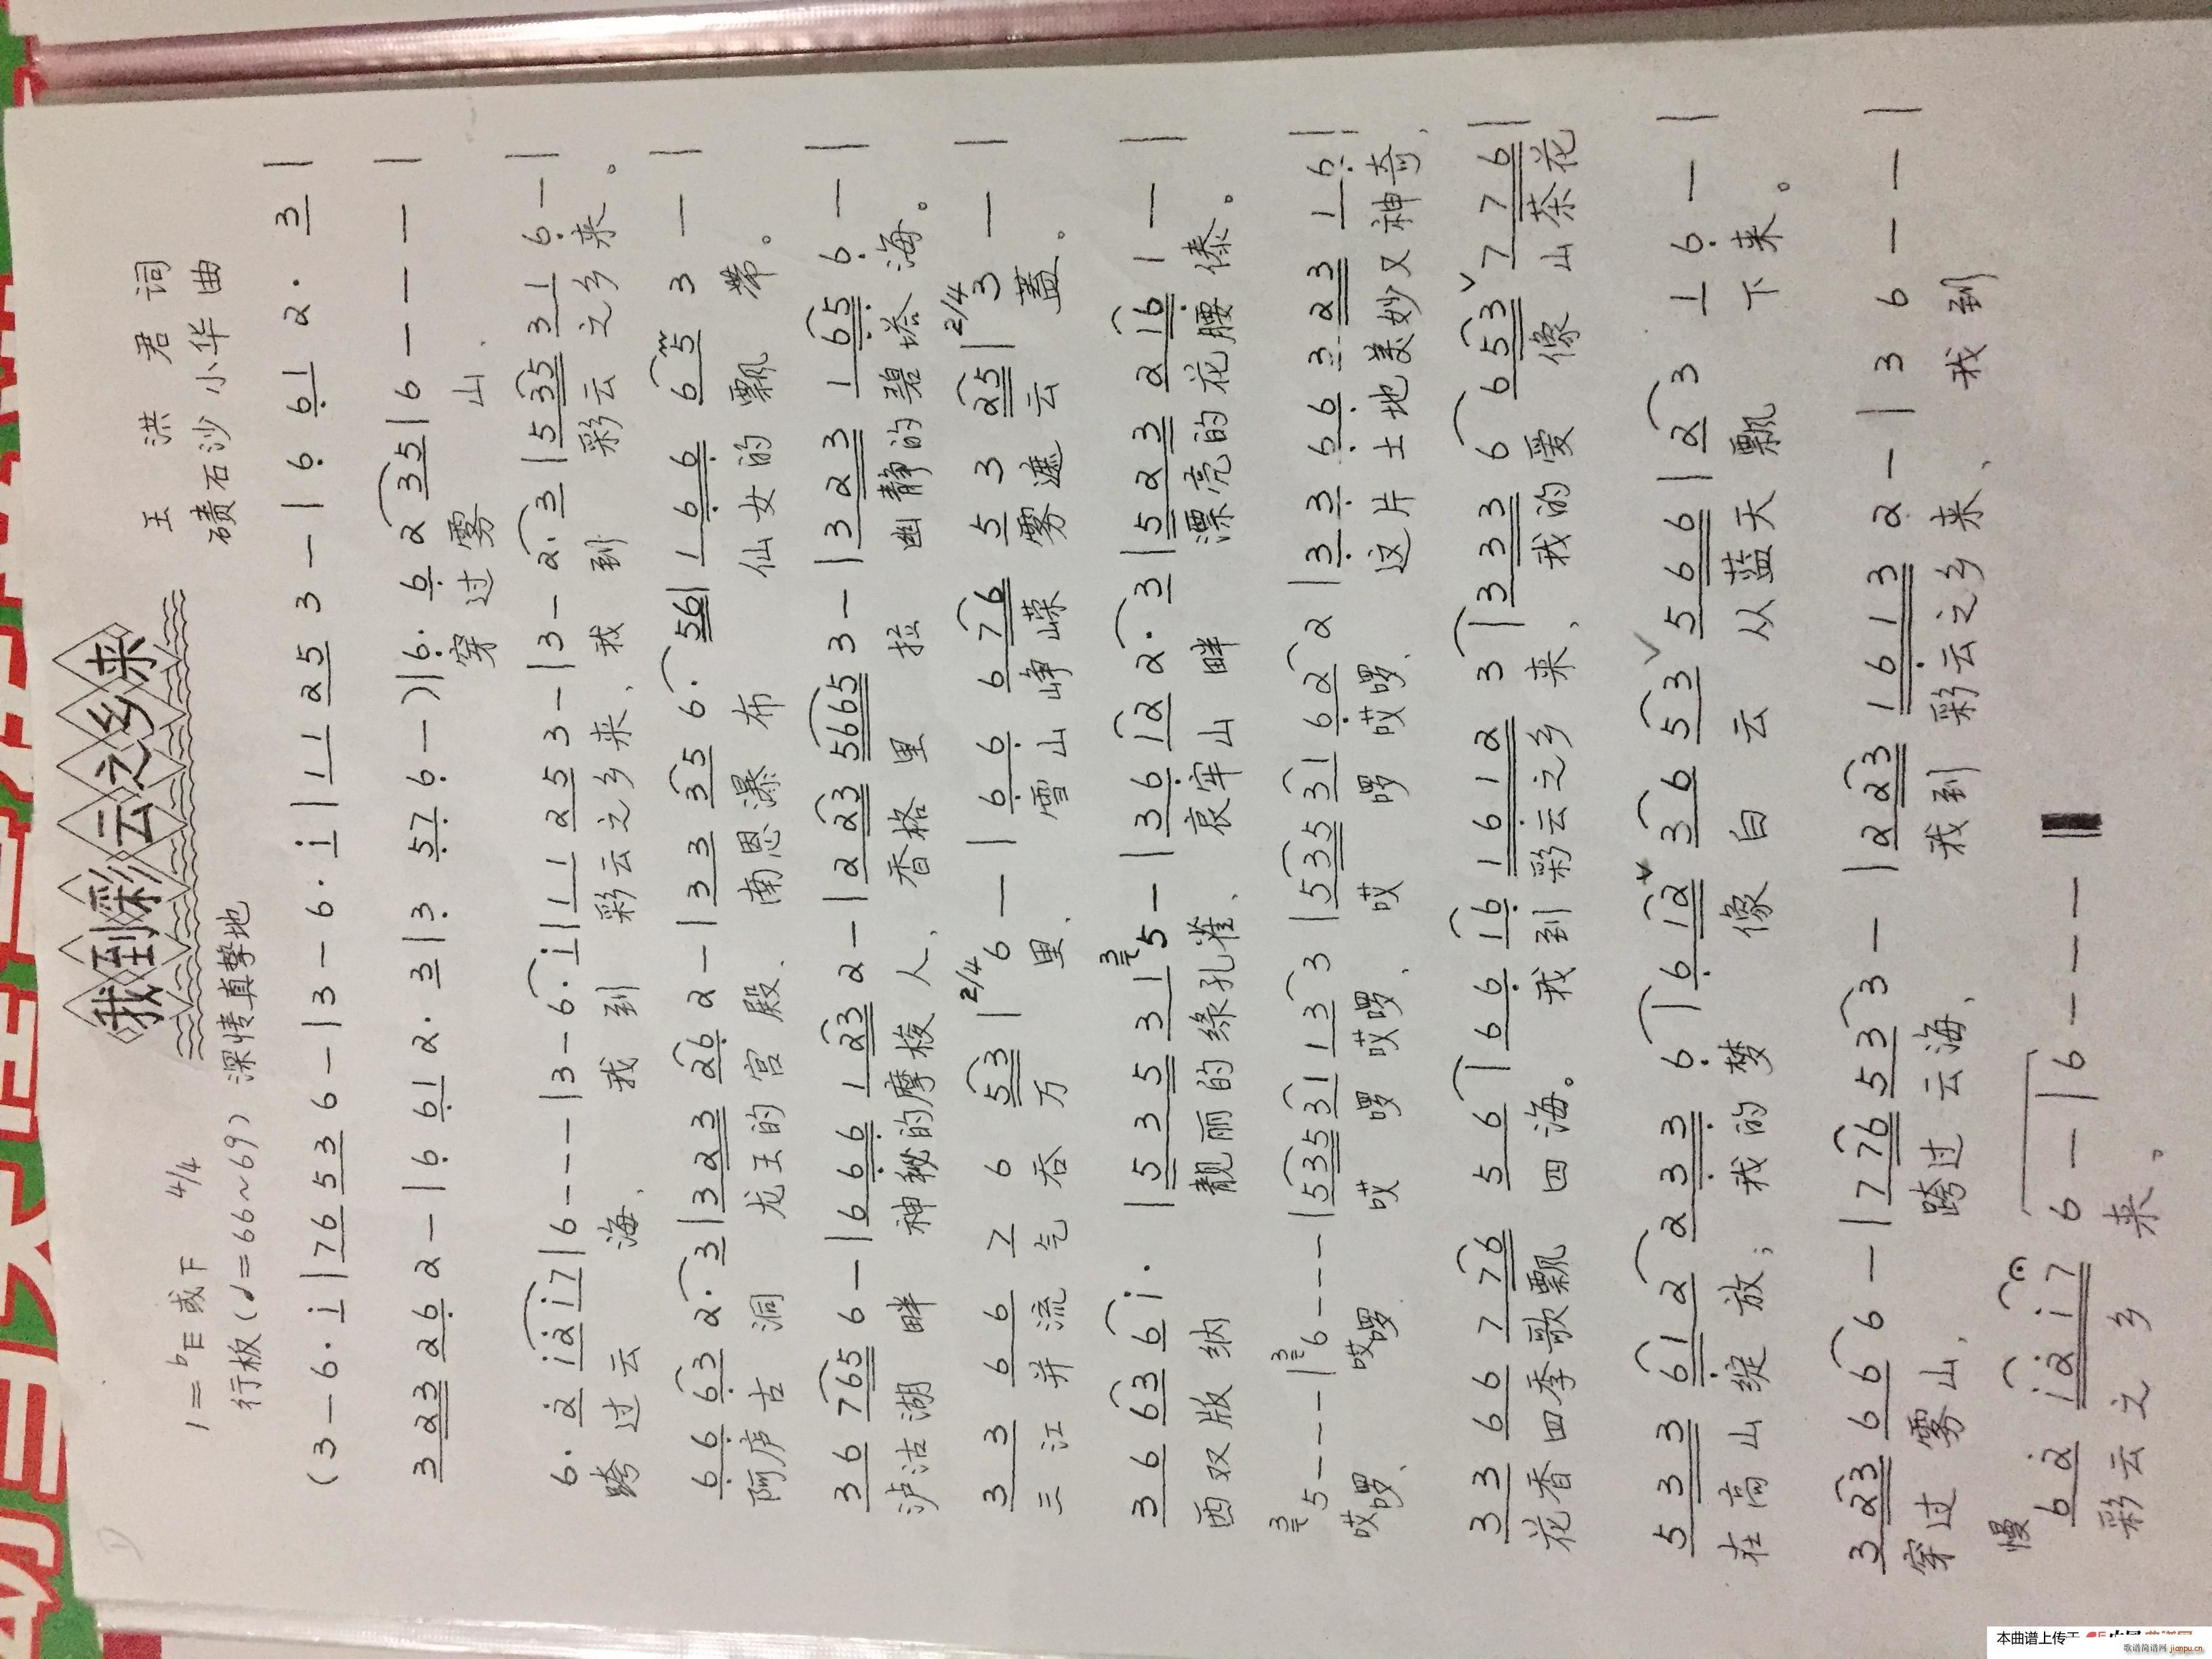 我到彩云之乡来
王洪君 词
1=ᵇE或下 4/4
碛石沙小华 曲
行板(♩=66~69) 深情真挚地
(3 — 6· i | 76 53 6 — | 3 — 6· i | 11 25 3 — | 6 61 2· 3 |
3 23 26 2 — | 6 61 2· 3 | 3 57 6 — ) | 6· 6 2 35 | 6 — — — |
穿过雾山、
6· 2 i2i7 | 6 — — — | 3 — 6· i | 11 25 3 — | 3 — 2· 3 | 5 35 31 6 — |
跨过云海、我到彩云之乡来、我到彩云之乡来。
66 63 2· 3 | 3 23 26 2 — | 33 35 6· 56 | 1 66 65 3 — |
阿庐古洞龙王的宫殿、南恩瀑布仙女的飘带。
36 765 6 — | 666 123 2 — | 2 23 5665 3 — | 323 165 6 — |
泸沽湖畔神秘的摩梭人、香格里拉幽静的碧塔海。
33 66 7 6 53 | 2/4 6 — | 66 6 76 5 3 25 | 2/4 3 — |
三江并流气吞万里、雪山峥嵘雾遮云蓋。
36 63 6 i· | 535 31 5 — | 36 12 2· 3 | 523 216 1 — |
西双版纳靓丽的绿孔雀、哀牢山畔漂亮的花腰傣。
5 — — — | 6 — — — | 535 31 13 3 | 535 31 62 2 | 33 66 3 23 16 |
哎啰、哎啰哎啰哎啰、哎啰哎啰、这片土地美妙又神奇、
33 66 7 76 5 6 | 66 16 1612 3 | 333 6 653 7 76 |
花香四季歌飘四海。我到彩云之乡来、我的爱像山茶花
533 61 2 233 6 | 6 12 36 53 566 | 2 3 1 6 — |
在高山绽放；我的梦像白云从蓝天飘下来。
323 66 6 — | 7 76 53 3 — | 2 23 1613 2 — | 3 6 — — |
穿过雾山、跨过云海、我到彩云之乡来、我到
慢
6 2 i2i7 6 — | 6 — — — ‖
彩云之乡来。
本曲谱上传于
歌谱简谱网 jianpu.cn